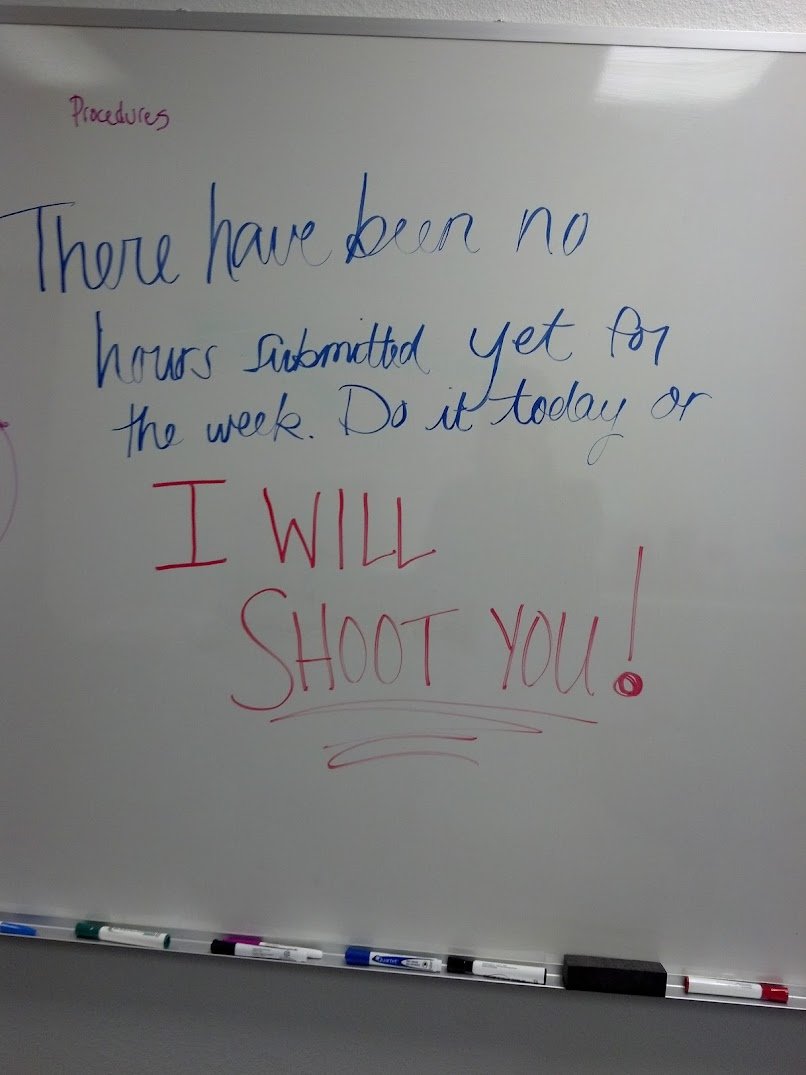 Procedures
There have been no
hours submitted yet for
the week. Do it today or
I WILL
SHOOT YOU!
Quartet